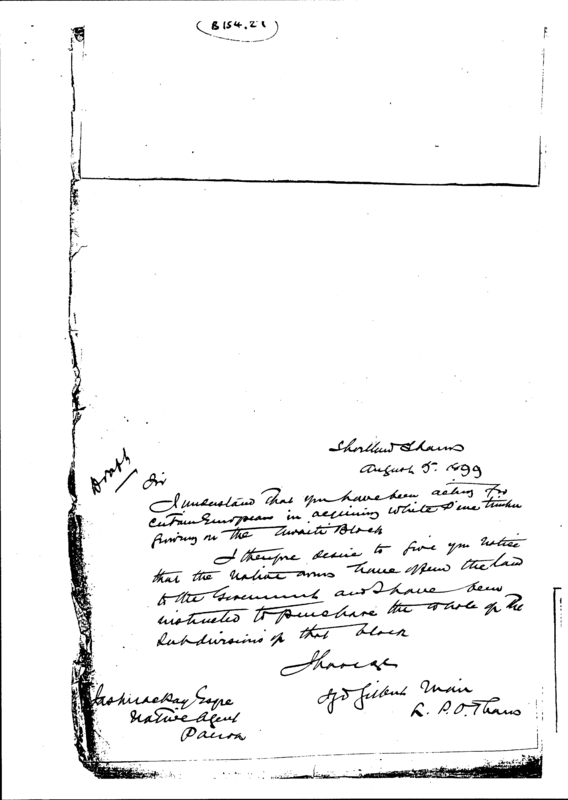 B154.21
Shortland Thames
August 5. 1899
Draft
Sir
I understand that you have been acting for
certain Europeans in acquiring white Pine timber
growing on the Awaiti Block
I therefore desire to give you notice
that the native owners have offered the land
to the Government and I have been
instructed to purchase the whole of the
Subdivisions of that block
I have &c
Sgd Gilbert Mair
L. P. O. Thames
Native Agent
Paeroa